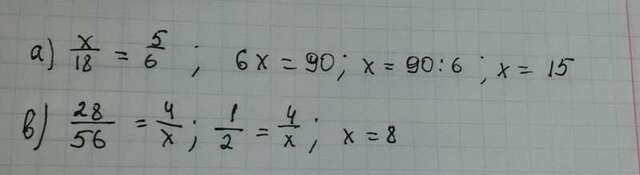 а) x/18 = 5/6 ; 6x = 90 ; x = 90:6 ; x = 15
в) 28/56 = 4/x ; 1/2 = 4/x ; x = 8